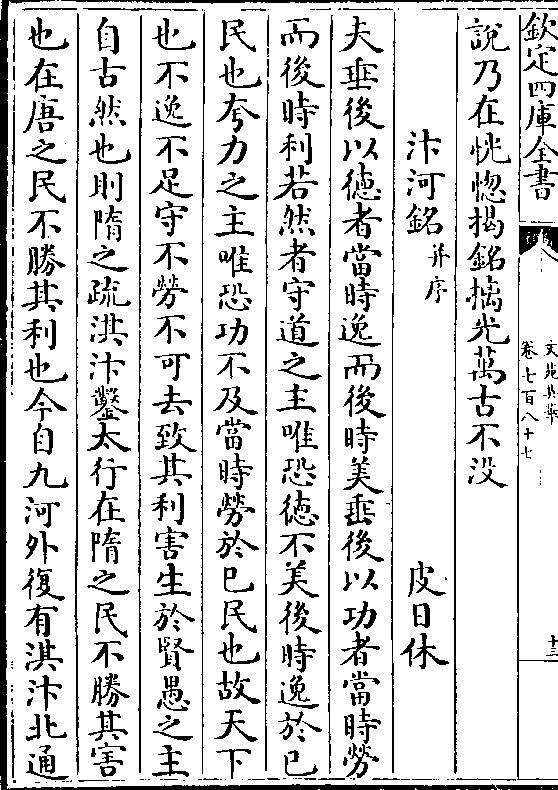 欽定四庫全書
文苑英華
卷七百八十七
十三
說乃在恍惚揭銘摛光萬古不没
汴河銘并序 皮日休
夫垂後以德者當時逸而後時美垂後以功者當時勞
而後時利若然者守道之主唯恐德不美後時逸於已
民也夸力之主唯恐功不及當時勞於已民也故天下
也不逸不足守不勞不可去致其利害生於賢愚之主
自古然也則隋之疏淇汴鑿太行在隋之民不勝其害
也在唐之民不勝其利也今自九河外復有淇汴北通